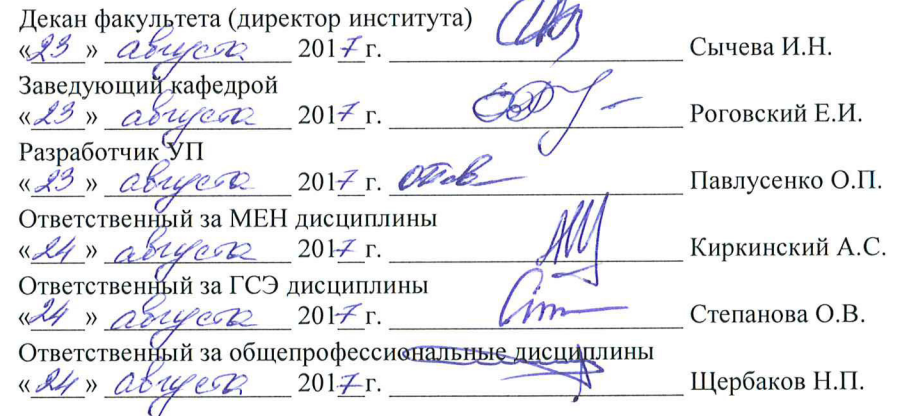 Декан факультета (директор института)
«23» августа 2017 г. Сычева И.Н.
Заведующий кафедрой
«23» августа 2017 г. Роговский Е.И.
Разработчик УП
«23» августа 2017 г. Павлусенко О.П.
Ответственный за МЕН дисциплины
«24» августа 2017 г. Киркинский А.С.
Ответственный за ГСЭ дисциплины
«24» августа 2017 г. Степанова О.В.
Ответственный за общепрофессиональные дисциплины
«24» августа 2017 г. Щербаков Н.П.